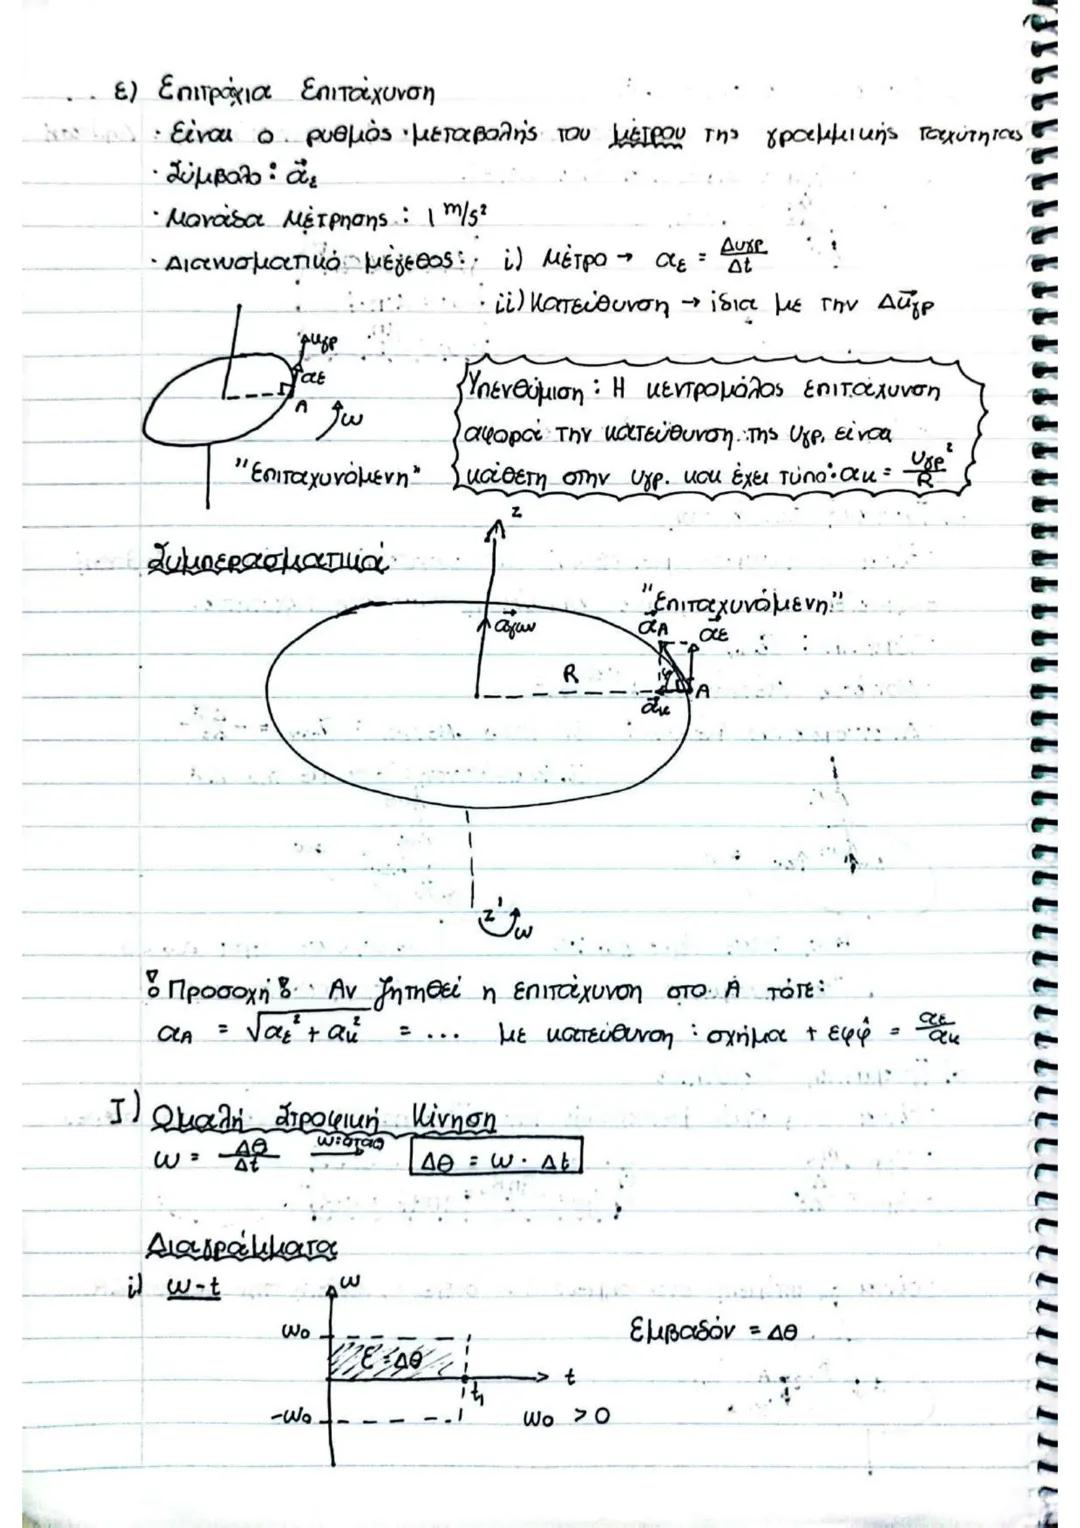 ε) Επιτρόχια Επιτάχυνση
· Είναι ο ρυθμός μεταβολής του μέτρου της γραμμικής ταχύτητας
· Σύμβολο : α⃗ε
· Μονάδα Μέτρησης : 1 m/s²
· Διανυσματικό μέγεθος : i) Μέτρο → αε = Δυγρ/Δt
ii) Κατεύθυνση → ίδια με την Δυ⃗γρ
υγρ
αε
A
ω
"Επιταχυνόμενη"
Υπενθύμιση : Η κεντρομόλος επιτάχυνση
αφορά την κατεύθυνση της υγρ, είναι
κάθετη στην υγρ. και έχει τύπο : ακ = υγρ²/R
Συμπερασματικά
z
"Επιταχυνόμενη"
α⃗γων
α⃗A
α⃗ε
R
φ
A
α⃗κ
z'
ω
! Προσοχή ! Αν ζητηθεί η επιτάχυνση στο A τότε :
αA = √αε² + ακ² = ... με κατεύθυνση : σχήμα + εφφ̂ = αε/ακ
I) Ομαλή Στροφική Κίνηση
ω = Δθ/Δt ω=σταθ Δθ = ω · Δt
Διαγράμματα
i) ω-t
ω
ω₀
Εμβαδόν = Δθ
Ε=Δθ
t
t₁
-ω₀
ω₀ > 0